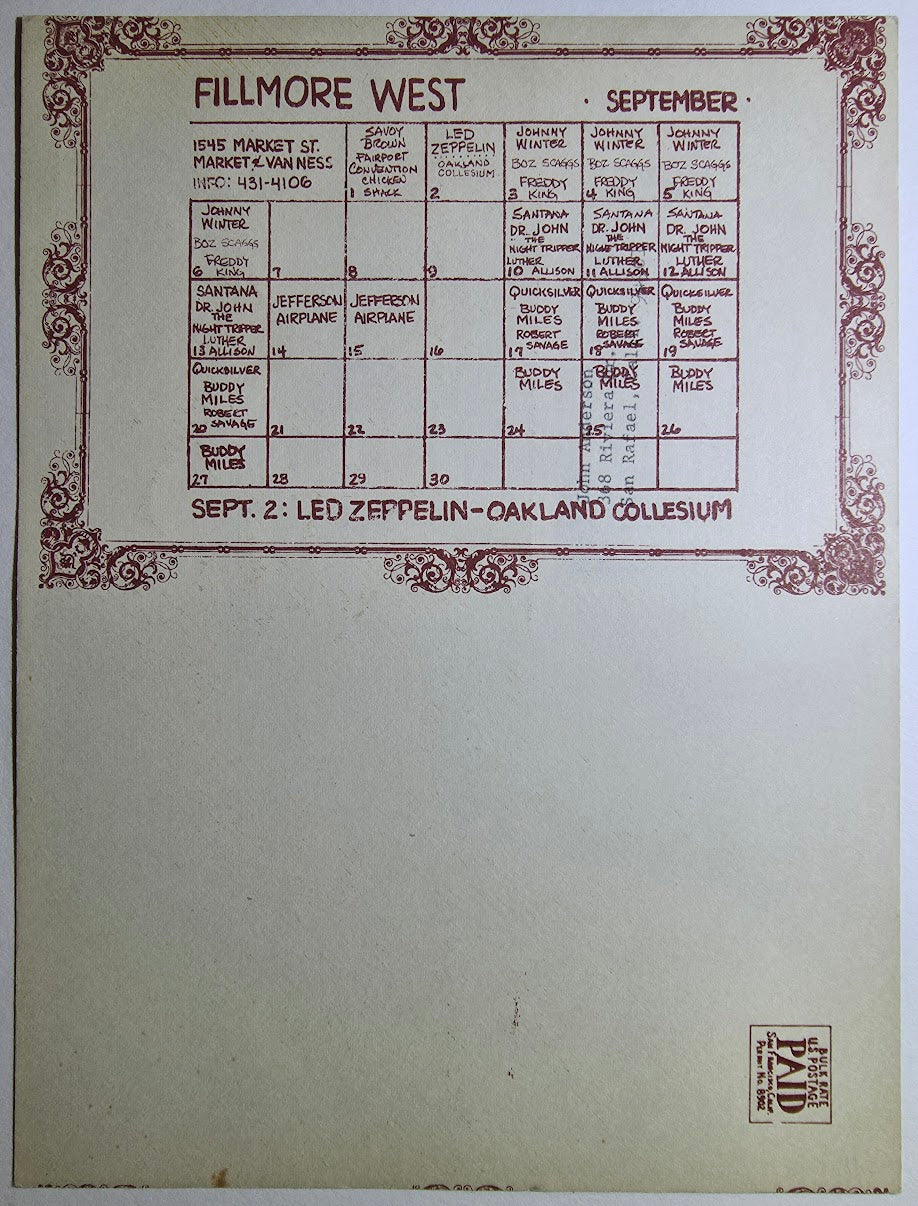 FILLMORE WEST
· SEPTEMBER ·
1545 MARKET ST.
MARKET & VAN NESS
INFO: 431-4106
SAVOY
BROWN
FAIRPORT
CONVENTION
CHICKEN
1 SHACK
LED
ZEPPELIN
OAKLAND
COLLESIUM
2
JOHNNY
WINTER
BOZ SCAGGS
FREDDY
3 KING
JOHNNY
WINTER
BOZ SCAGGS
FREDDY
4 KING
JOHNNY
WINTER
BOZ SCAGGS
FREDDY
5 KING
JOHNNY
WINTER
BOZ SCAGGS
FREDDY
6 KING
7
8
9
SANTANA
DR. JOHN
THE
NIGHT TRIPPER
LUTHER
10 ALLISON
SANTANA
DR. JOHN
THE
NIGHT TRIPPER
LUTHER
11 ALLISON
SANTANA
DR. JOHN
THE
NIGHT TRIPPER
LUTHER
12 ALLISON
SANTANA
DR. JOHN
THE
NIGHT TRIPPER
LUTHER
13 ALLISON
JEFFERSON
AIRPLANE
14
JEFFERSON
AIRPLANE
15
16
QUICKSILVER
BUDDY
MILES
ROBERT
SAVAGE
17
QUICKSILVER
BUDDY
MILES
ROBERT
SAVAGE
18
QUICKSILVER
BUDDY
MILES
ROBERT
SAVAGE
19
QUICKSILVER
BUDDY
MILES
ROBERT
20 SAVAGE
21
22
23
BUDDY
MILES
24
BUDDY
MILES
25
BUDDY
MILES
26
BUDDY
MILES
27
28
29
30
SEPT. 2: LED ZEPPELIN-OAKLAND COLLESIUM
John Anderson
368 Riviera
San Rafael,
BULK RATE
U.S. POSTAGE
PAID
SAN FRANCISCO, CALIF.
PERMIT NO. 8902